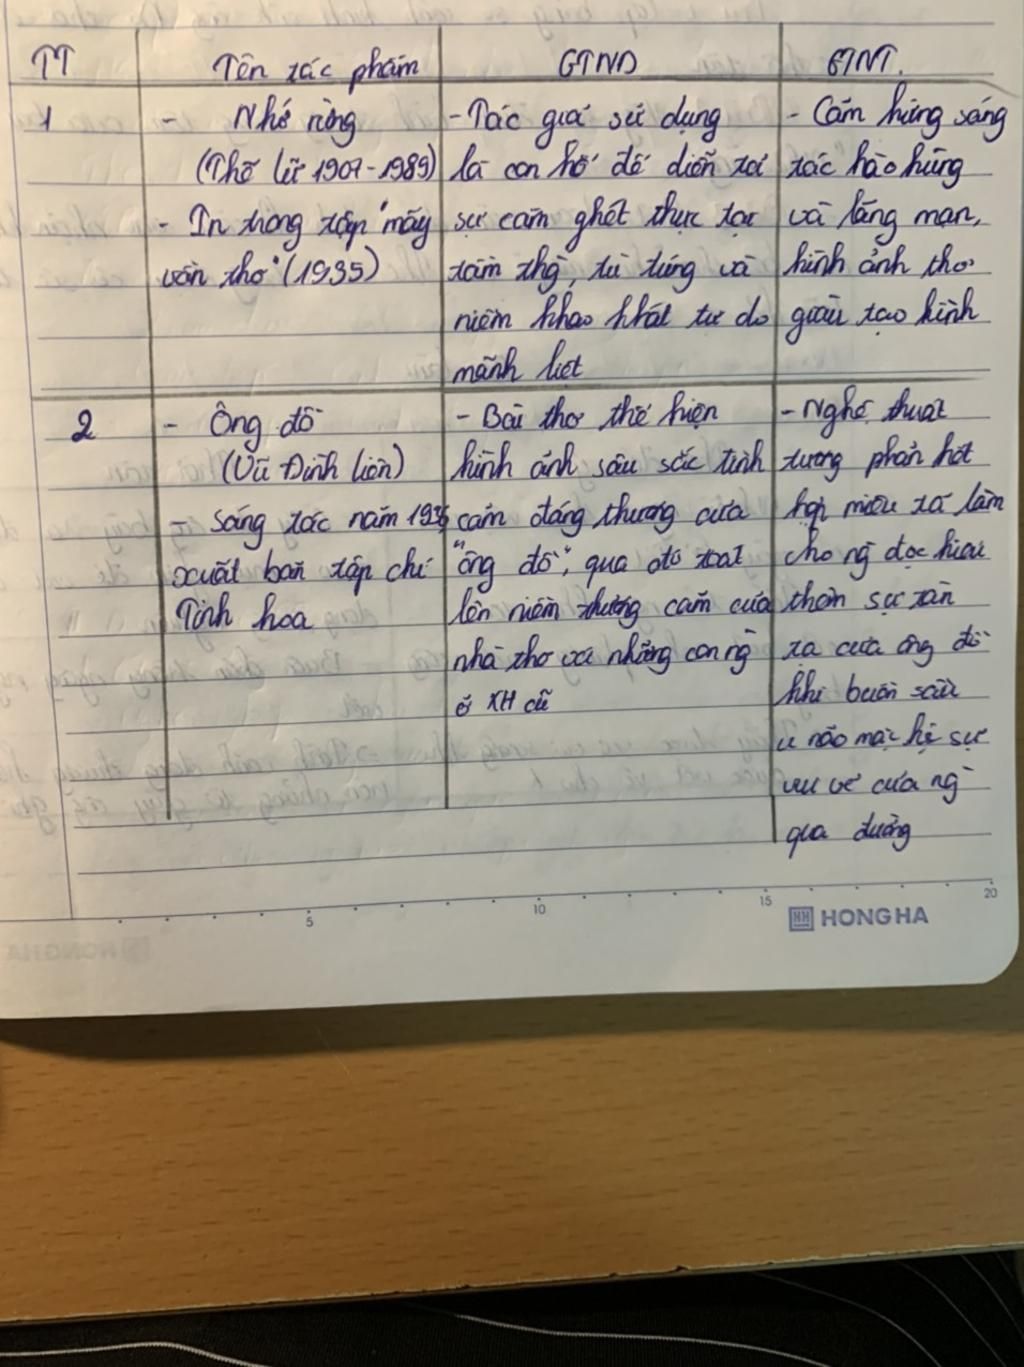 TT Tên tác phẩm GTND GTNT.
1 - Nhớ rừng
(Thế Lữ 1907-1989)
- In trong tập "mấy
vần thơ" (1935)
- Tác giả sử dụng
là con hổ để diễn tả
sự căm ghét thực tại
tầm thg, tù túng và
niềm khao khát tự do
mãnh liệt
- Cảm hứng sáng
tác hào hùng
và lãng mạn,
hình ảnh thơ
giàu tạo hình
2 - Ông đồ
(Vũ Đình Liên)
- sáng tác năm 1936
xuất bản tập chí
Tinh hoa
- Bài thơ thể hiện
hình ảnh sâu sắc tình
cảm đáng thương của
"ông đồ", qua đó toát
lên niềm thương cảm của
nhà thơ với những con ng
ở XH cũ
- Nghệ thuật
tương phản kết
hợp miêu tả làm
cho ng đọc hiểu
thêm sự tàn
tạ của ông đồ
khi buồn sầu
u não mặc kệ sự
vui vẻ của ng
qua đường
5 10 15 20
HH HONG HA